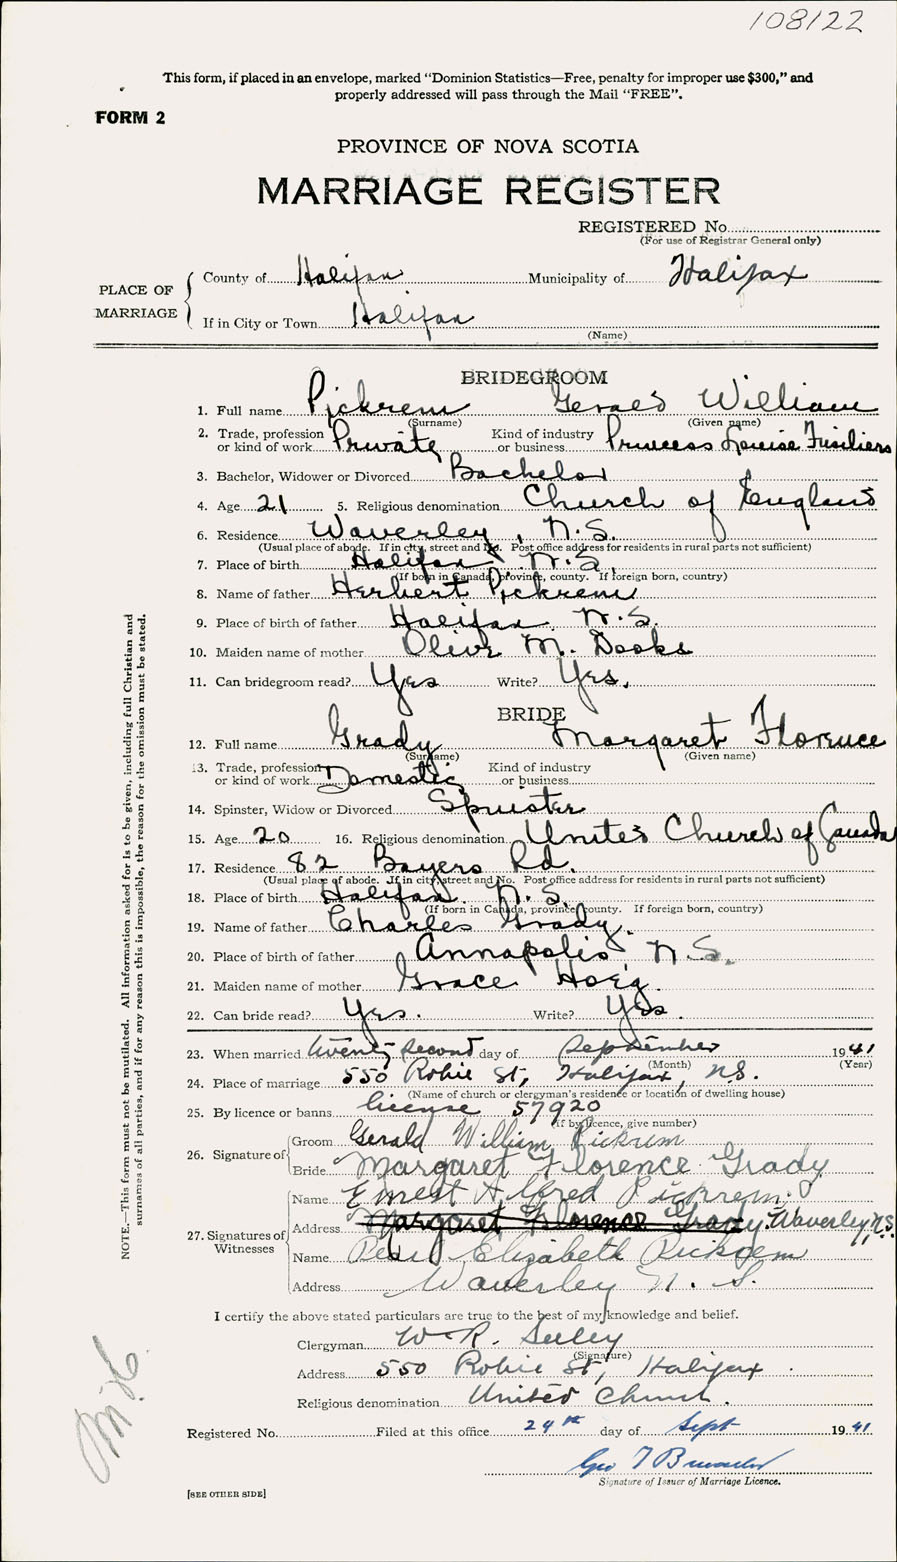 108122
This form, if placed in an envelope, marked "Dominion Statistics—Free, penalty for improper use $300," and
properly addressed will pass through the Mail "FREE".
FORM 2
PROVINCE OF NOVA SCOTIA
MARRIAGE REGISTER
REGISTERED No.
(For use of Registrar General only)
PLACE OF MARRIAGE
County of Halifax Municipality of Halifax
If in City or Town Halifax
(Name)
BRIDEGROOM
1. Full name Pickrem Gerald William
(Surname) (Given name)
2. Trade, profession or kind of work Private Kind of industry or business Princess Louise Fusiliers
3. Bachelor, Widower or Divorced Bachelor
4. Age 21 5. Religious denomination Church of England
6. Residence Waverley, N.S.
(Usual place of abode. If in city, street and No. Post office address for residents in rural parts not sufficient)
7. Place of birth Halifax N.S.
(If born in Canada, province, county. If foreign born, country)
8. Name of father Herbert Pickrem
9. Place of birth of father Halifax, N.S.
10. Maiden name of mother Olive M. Dooks
11. Can bridegroom read? Yes Write? Yes.
BRIDE
12. Full name Grady Margaret Florence
(Surname) (Given name)
13. Trade, profession or kind of work Domestic Kind of industry or business
14. Spinster, Widow or Divorced Spinster
15. Age 20 16. Religious denomination United Church of Canada
17. Residence 82 Bayers Rd.
(Usual place of abode. If in city, street and No. Post office address for residents in rural parts not sufficient)
18. Place of birth Halifax N.S.
(If born in Canada, province, county. If foreign born, country)
19. Name of father Charles Grady.
20. Place of birth of father Annapolis, N.S.
21. Maiden name of mother Grace Hoeg.
22. Can bride read? Yes. Write? Yes.
23. When married twenty second day of September 1941
(Month) (Year)
24. Place of marriage 550 Robie St, Halifax, N.S.
(Name of church or clergyman's residence or location of dwelling house)
25. By licence or banns license 57920
(If by licence, give number)
26. Signature of
Groom Gerald William Pickrem
Bride Margaret Florence Grady
27. Signatures of Witnesses
Name Ernest Alfred Pickrem.
Address Margaret Florence Grady. Waverley, N.S.
Name Pearl Elizabeth Pickrem
Address Waverley N. S.
I certify the above stated particulars are true to the best of my knowledge and belief.
Clergyman W. R. Seeley
(Signature)
Address 550 Robie St, Halifax.
Religious denomination United Church.
Registered No. Filed at this office 24th day of Sept 1941
Geo T
Signature of Issuer of Marriage Licence.
[SEE OTHER SIDE]
NOTE.—This form must not be mutilated. All information asked for is to be given, including full Christian and
surnames of all parties, and if for any reason this is impossible, the reason for the omission must be stated.